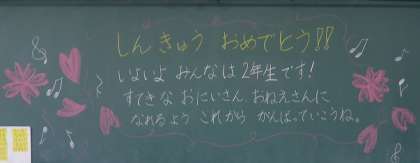 しんきゅう おめでとう!!
いよいよ みんなは 2年生です!
すてきな おにいさん、おねえさんに
なれるよう これから がんばっていこうね。